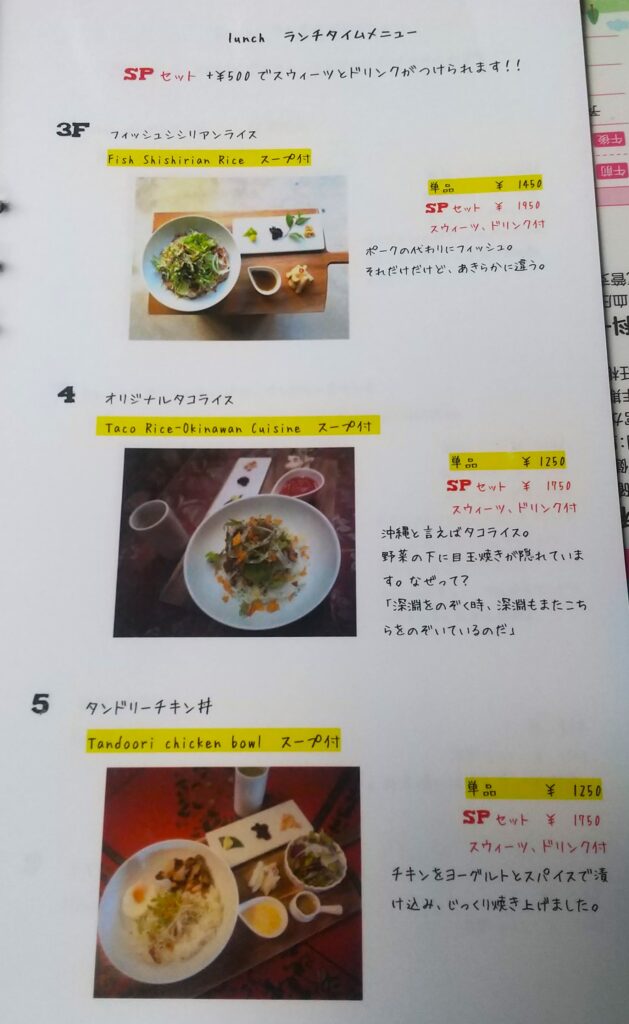 lunch ランチタイムメニュー
SPセット +¥500でスウィーツとドリンクがつけられます!!
3F フィッシュシシリアンライス
Fish Shishirian Rice スープ付
単品 ¥ 1450
SPセット ¥ 1950
スウィーツ、ドリンク付
ポークの代わりにフィッシュ。
それだけだけど、あきらかに違う。
4 オリジナルタコライス
Taco Rice-Okinawan Cuisine スープ付
単品 ¥ 1250
SPセット ¥ 1750
スウィーツ、ドリンク付
沖縄と言えばタコライス。
野菜の下に目玉焼きが隠れていま
す。なぜって?
「深淵をのぞく時、深淵もまたこち
らをのぞいているのだ」
5 タンドリーチキン丼
Tandoori chicken bowl スープ付
単品 ¥ 1250
SPセット ¥ 1750
スウィーツ、ドリンク付
チキンをヨーグルトとスパイスで漬
け込み、じっくり焼き上げました。
午後
午前